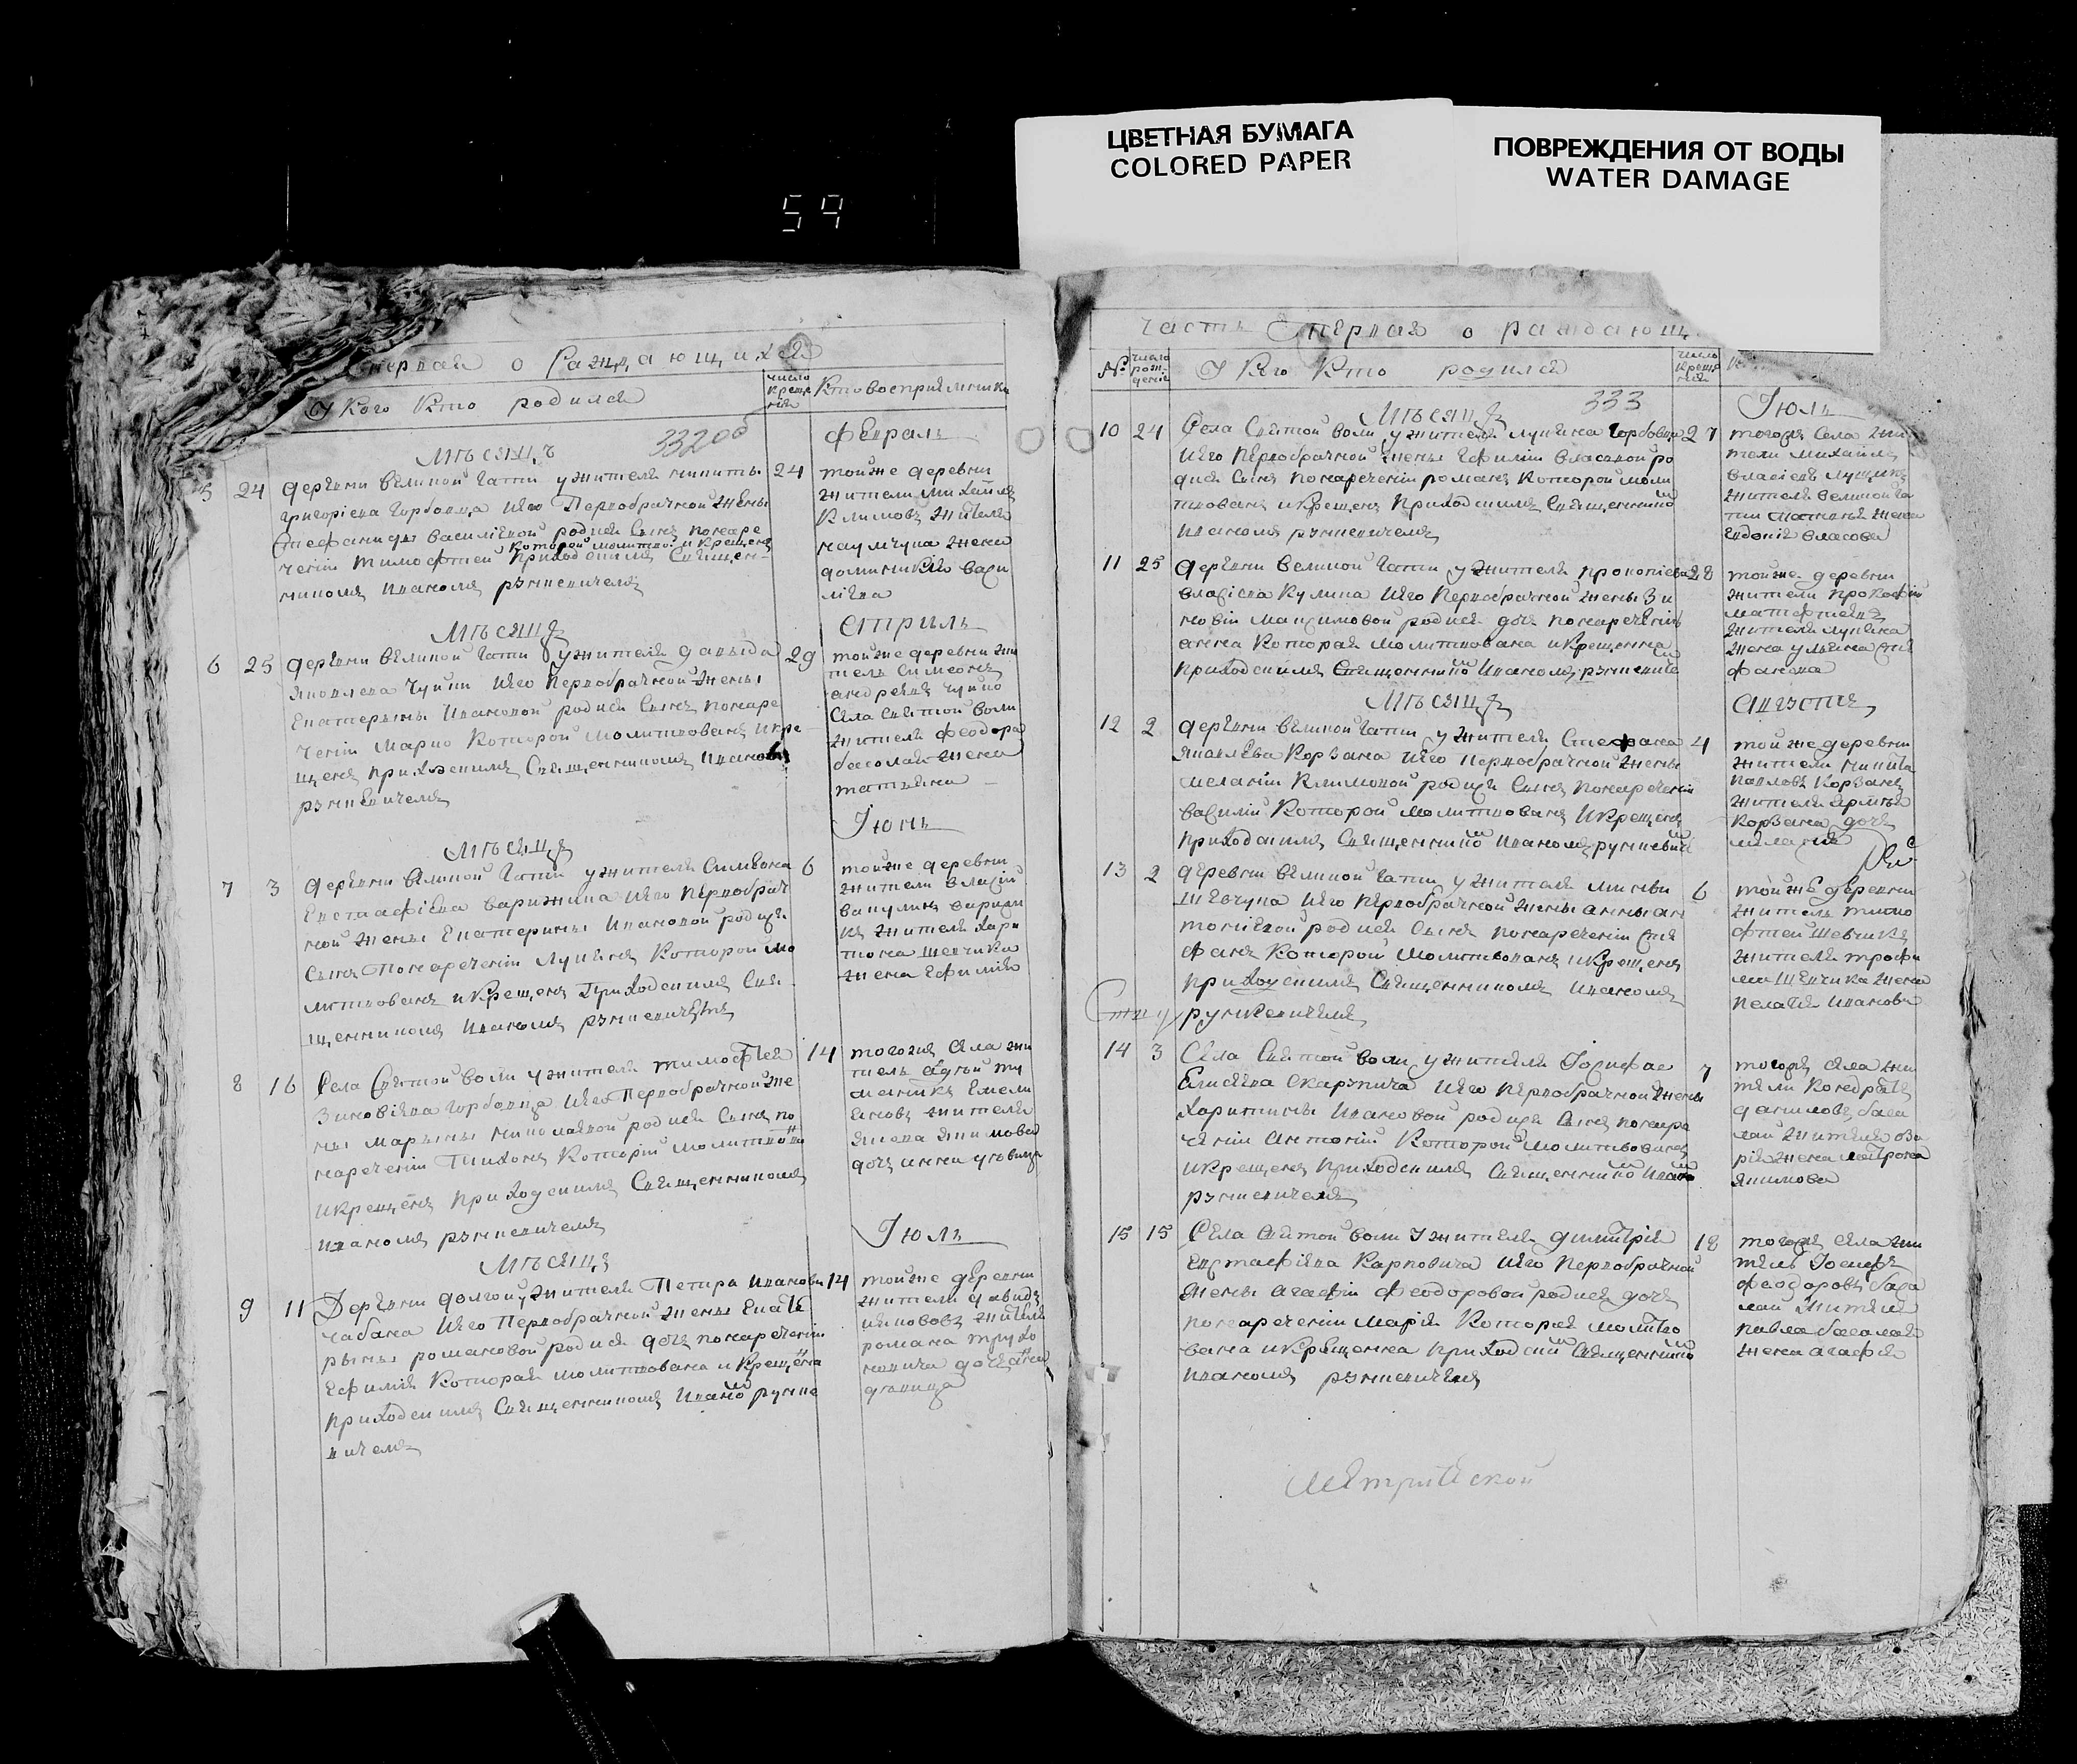 ЦВЕТНАЯ БУМАГА
COLORED PAPER
ПОВРЕЖДЕНИЯ ОТ ВОДЫ
WATER DAMAGE
59
первая о Раждающихся
У Кого Кто родился
число креще нїя
Кто восприемники
332 об
Мѣсяцъ
февраль
5 24 деревни великой Гати у жителя никиты
григорїева горбовца и его Первобрачной Жены
Стефаниды василїевой родися Сынъ понаре
которой молитвой и крещенъ
ченїи тимофтей Приходскимъ Священ
никомъ Иваномъ румкевичемъ
24 тойже деревни
жители михайла
Климовъ жителя
наумчука жена
доминикїя васи
лїева
Мѣсяца
априль
6 25 деревни великой Гати у жителя давыда
Яковлева чуйки и его Первобрачной Жены
Екатерыны Ивановой родися Сынъ понаре
ченїи Марко Которой Молитвованъ и кре
щенъ приходскимъ Священникомъ Иваномъ
румкевичемъ
29 тойже деревни жи
тель Симеонъ
андреевъ чуйко
Села святой воли
жителя феодора
басалая жена
татьяна
Мѣсяца
Іюнь
7 3 деревни великой Гати у жителя Симеона
Евстафїева
Первобрач
ной жены Екатерины Ивановой родися
Сынъ Понаречении Лукянъ Которой мо
литвованъ и Крещенъ Приходскимъ Свя
щенникомъ Иваномъ румкевичемъ
6 тойже деревни
жители
жителя хари
тона шевчика
жена Ефимїя
8 16 Села Святой воли у жителя тимофтея
Зиновїева горбовца и его Первобрачной же
ны Марыны николаевой родися Сынъ по
наречении Тихонъ Которїй молитвован
и крещенъ приходскимъ Священникомъ
Иваномъ румкевичемъ
14 тогожъ Села жи
тель
жителя
Якова Якимова
дочь анна удовица
Мѣсяца
Іюль
9 11 Деревни долгой у жителя Петра Иванова
чабана и его Первобрачной жены Екате
рыны романовой родися дочь понаречении
Ефимїя Которая молитвована и Крещена
приходскимъ Священникомъ Ивано румке
вичемъ
14 тойже деревни
жители давидъ
жителя
романа
дочь
удовица
Часть Первая о раждающ
№
число рож дения
У Кого Кто родился
число креще нїя
333
Мѣсяца
Іюль
10 24 Села Святой воли у жителя лукяна Горбовца
и его Первобрачной жены Ефимїи власовой ро
дися Сынъ понаречении романъ Которой моли
твованъ и крещенъ Приходскимъ Священнико
Иваномъ румкевичемъ
27 тогожъ Села жи
тели михайла
власїевъ лущикъ
жителя великой га
ти
жена
Евдокїя власова
11 25 деревни великой Гати у жителя прокопїева
власїева Кулика и его Первобрачной жены Зи
новїи Максимовой родися дочь понаречении
анна Которая Молитвована и Крещенна
приходскимъ Священнико Иваномъ румкевиче
28 тойже деревни
жители прокофїй
матфтеевъ
жителя лукяна
жена ульяна сте
фанова
Мѣсяца
августа
12 2 деревни великой Гати у жителя Стефана
Яковлева Корзана и его первобрачной жены
меланїи Климовой родися Сынъ понаречении
василїй Которой молитвованъ и Крещенъ
приходскимъ Священнико Иваномъ румкевиче
4 той же деревни
жители никита
павловъ Корзанъ
жителя
Корзана дочь
13 2 деревни великой Гати у жителя
Шевчука и его первобрачной жены анны ан
тонїевой родися Сынъ понаречении Сте
фанъ Которой Молитвованъ и Крещенъ
приходскимъ Священникомъ Иваномъ
румкевичемъ
6 той же деревни
житель тимо
фтей Шевчикъ
жителя трофи
ма Шевчика жена
пелагея Иванова
14 3 Села Святой воли у жителя
Елисеева Скарупича и его первобрачной жены
Харитины Ивановой родися Сынъ понаре
ченїи Антонїй Которой молитвованъ
и крещенъ приходскимъ Священнико Ивано
румкевичемъ
7 тогожъ села жи
тели Кондратъ
даниловъ баса
лай жителя
жена матрона
Якимова
15 15 Села Святой воли у жителя димитрїя
Евстафїева Карповича и его первобрачной
жены Агафїи феодоровой родися дочь
понаречении Марїя Которая молитво
вана и Крещенна приходский Священнико
Иваномъ румкевичемъ
18 тогожъ села жи
тель Іосифъ
феодоровъ баса
лай жителя
павла басалая
жена агафїя
Метрической